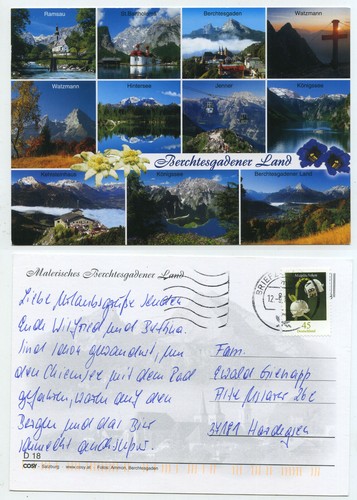 Ramsau St.Bartholomä Berchtesgaden Watzmann
Watzmann Hintersee Jenner Königssee
Berchtesgadener Land
Kehlsteinhaus Königssee Berchtesgadener Land
Malerisches Berchtesgadener Land
Liebe Urlaubsgrüße senden
Euch Wilfried und Bertina.
Sind schon gewandert, um
den Chiemsee mit dem Rad
gefahren, waren auf den
Bergen und das Bier
schmeckt
D 18
COSY Salzburg · www.cosy.at · Fotos: Ammon, Berchtesgaden
BRIEF
12.-8
45
Deutschland
Fam.
Ewald Gienapp
Alte 26c
37181 Hardegsen